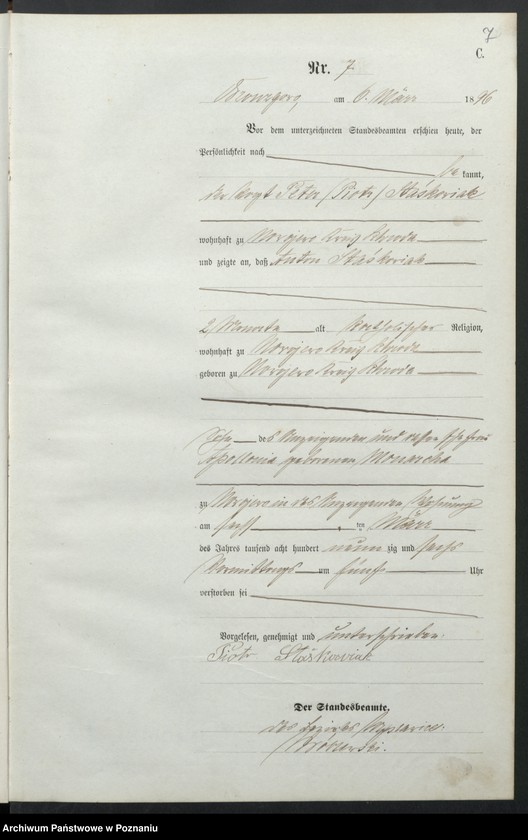 7
C.
Nr. 7
am 6. März 1896
Vor dem unterzeichneten Standesbeamten erschien heute, der
Persönlichkeit nach
bekannt,
der Vogt Peter (Piotr) Staśkowiak
wohnhaft zu Kreis Schroda
und zeigte an, daß Anton Staśkowiak
2 Monate alt katholischer Religion,
wohnhaft zu Kreis Schroda
geboren zu Kreis Schroda
Sohn des Anzeigenden und dessen Ehefrau
Apollonia geborenen
zu in des Anzeigenden Wohnung
am sechsten März
des Jahres tausend acht hundert neunzig und sechs
Vormittags um fünf Uhr
verstorben sei
Vorgelesen, genehmigt und unterschrieben.
Piotr Staśkowiak
Der Standesbeamte.
des Bezirks
Archiwum Państwowe w Poznaniu